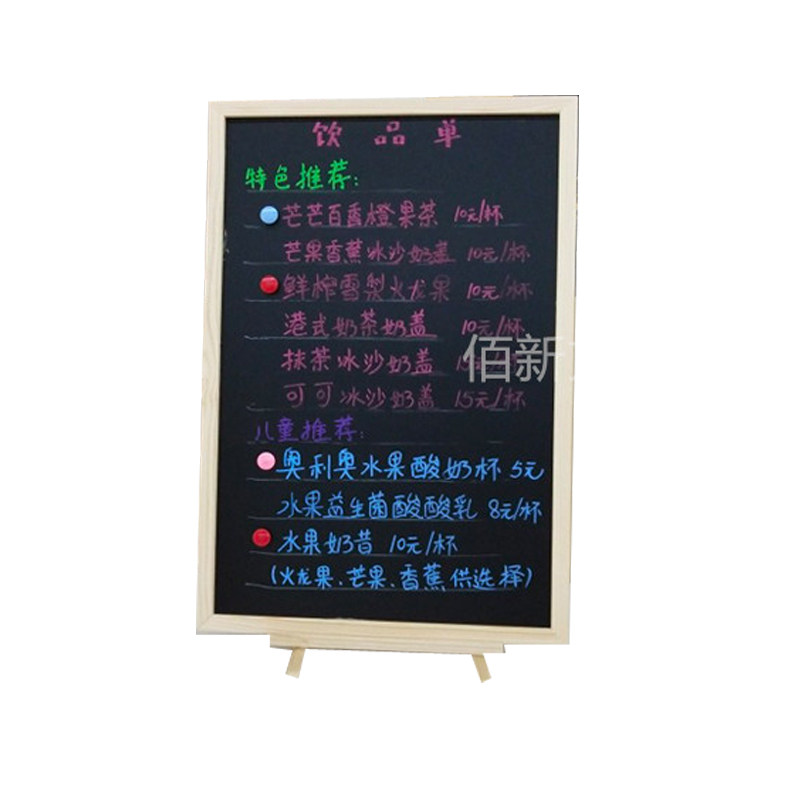 饮品单
特色推荐:
芒芒百香橙果茶 10元/杯
芒果香蕉冰沙奶盖 10元/杯
鲜榨雪梨火龙果 10元/杯
港式奶茶奶盖 10元/杯
抹茶冰沙奶盖
可可冰沙奶盖 15元/杯
佰新
儿童推荐:
奥利奥水果酸奶杯 5元
水果益生菌酸酸乳 8元/杯
水果奶昔 10元/杯
(火龙果、芒果、香蕉供选择)